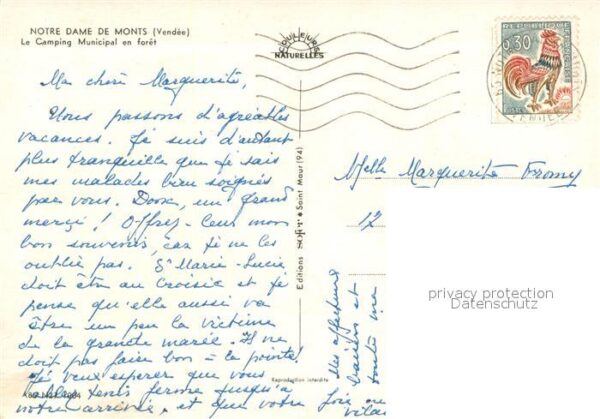 NOTRE DAME DE MONTS (Vendée)
Le Camping Municipal en forêt
COULEURS
NATURELLES
REPUBLIQUE FRANÇAISE
0,30
Ma chère Marguerite,
Vous passons d'agréables
vacances. Je suis d'autant
plus tranquille que je sais
mes malades bien soignés
par vous. Donc, un grand
merci ! Offrez-leur mon
bon souvenir, car je ne les
oublie pas. Sr Marie-Lucie
doit être au Croisic et je
pense qu'elle aussi va
être un peu la victime
de la grande marée. Il ne
doit pas faire bon à la pointe!
J'ai veux esperer que vous
allez tenir ferme jusqu'à
notre arrivée. et que votre
Editions NOR Saint Maur (94)
Reproduction interdite
Melle Marguerite Fromy
17
Mes affectueux
baisers et
toute ma
privacy protection
Datenschutz